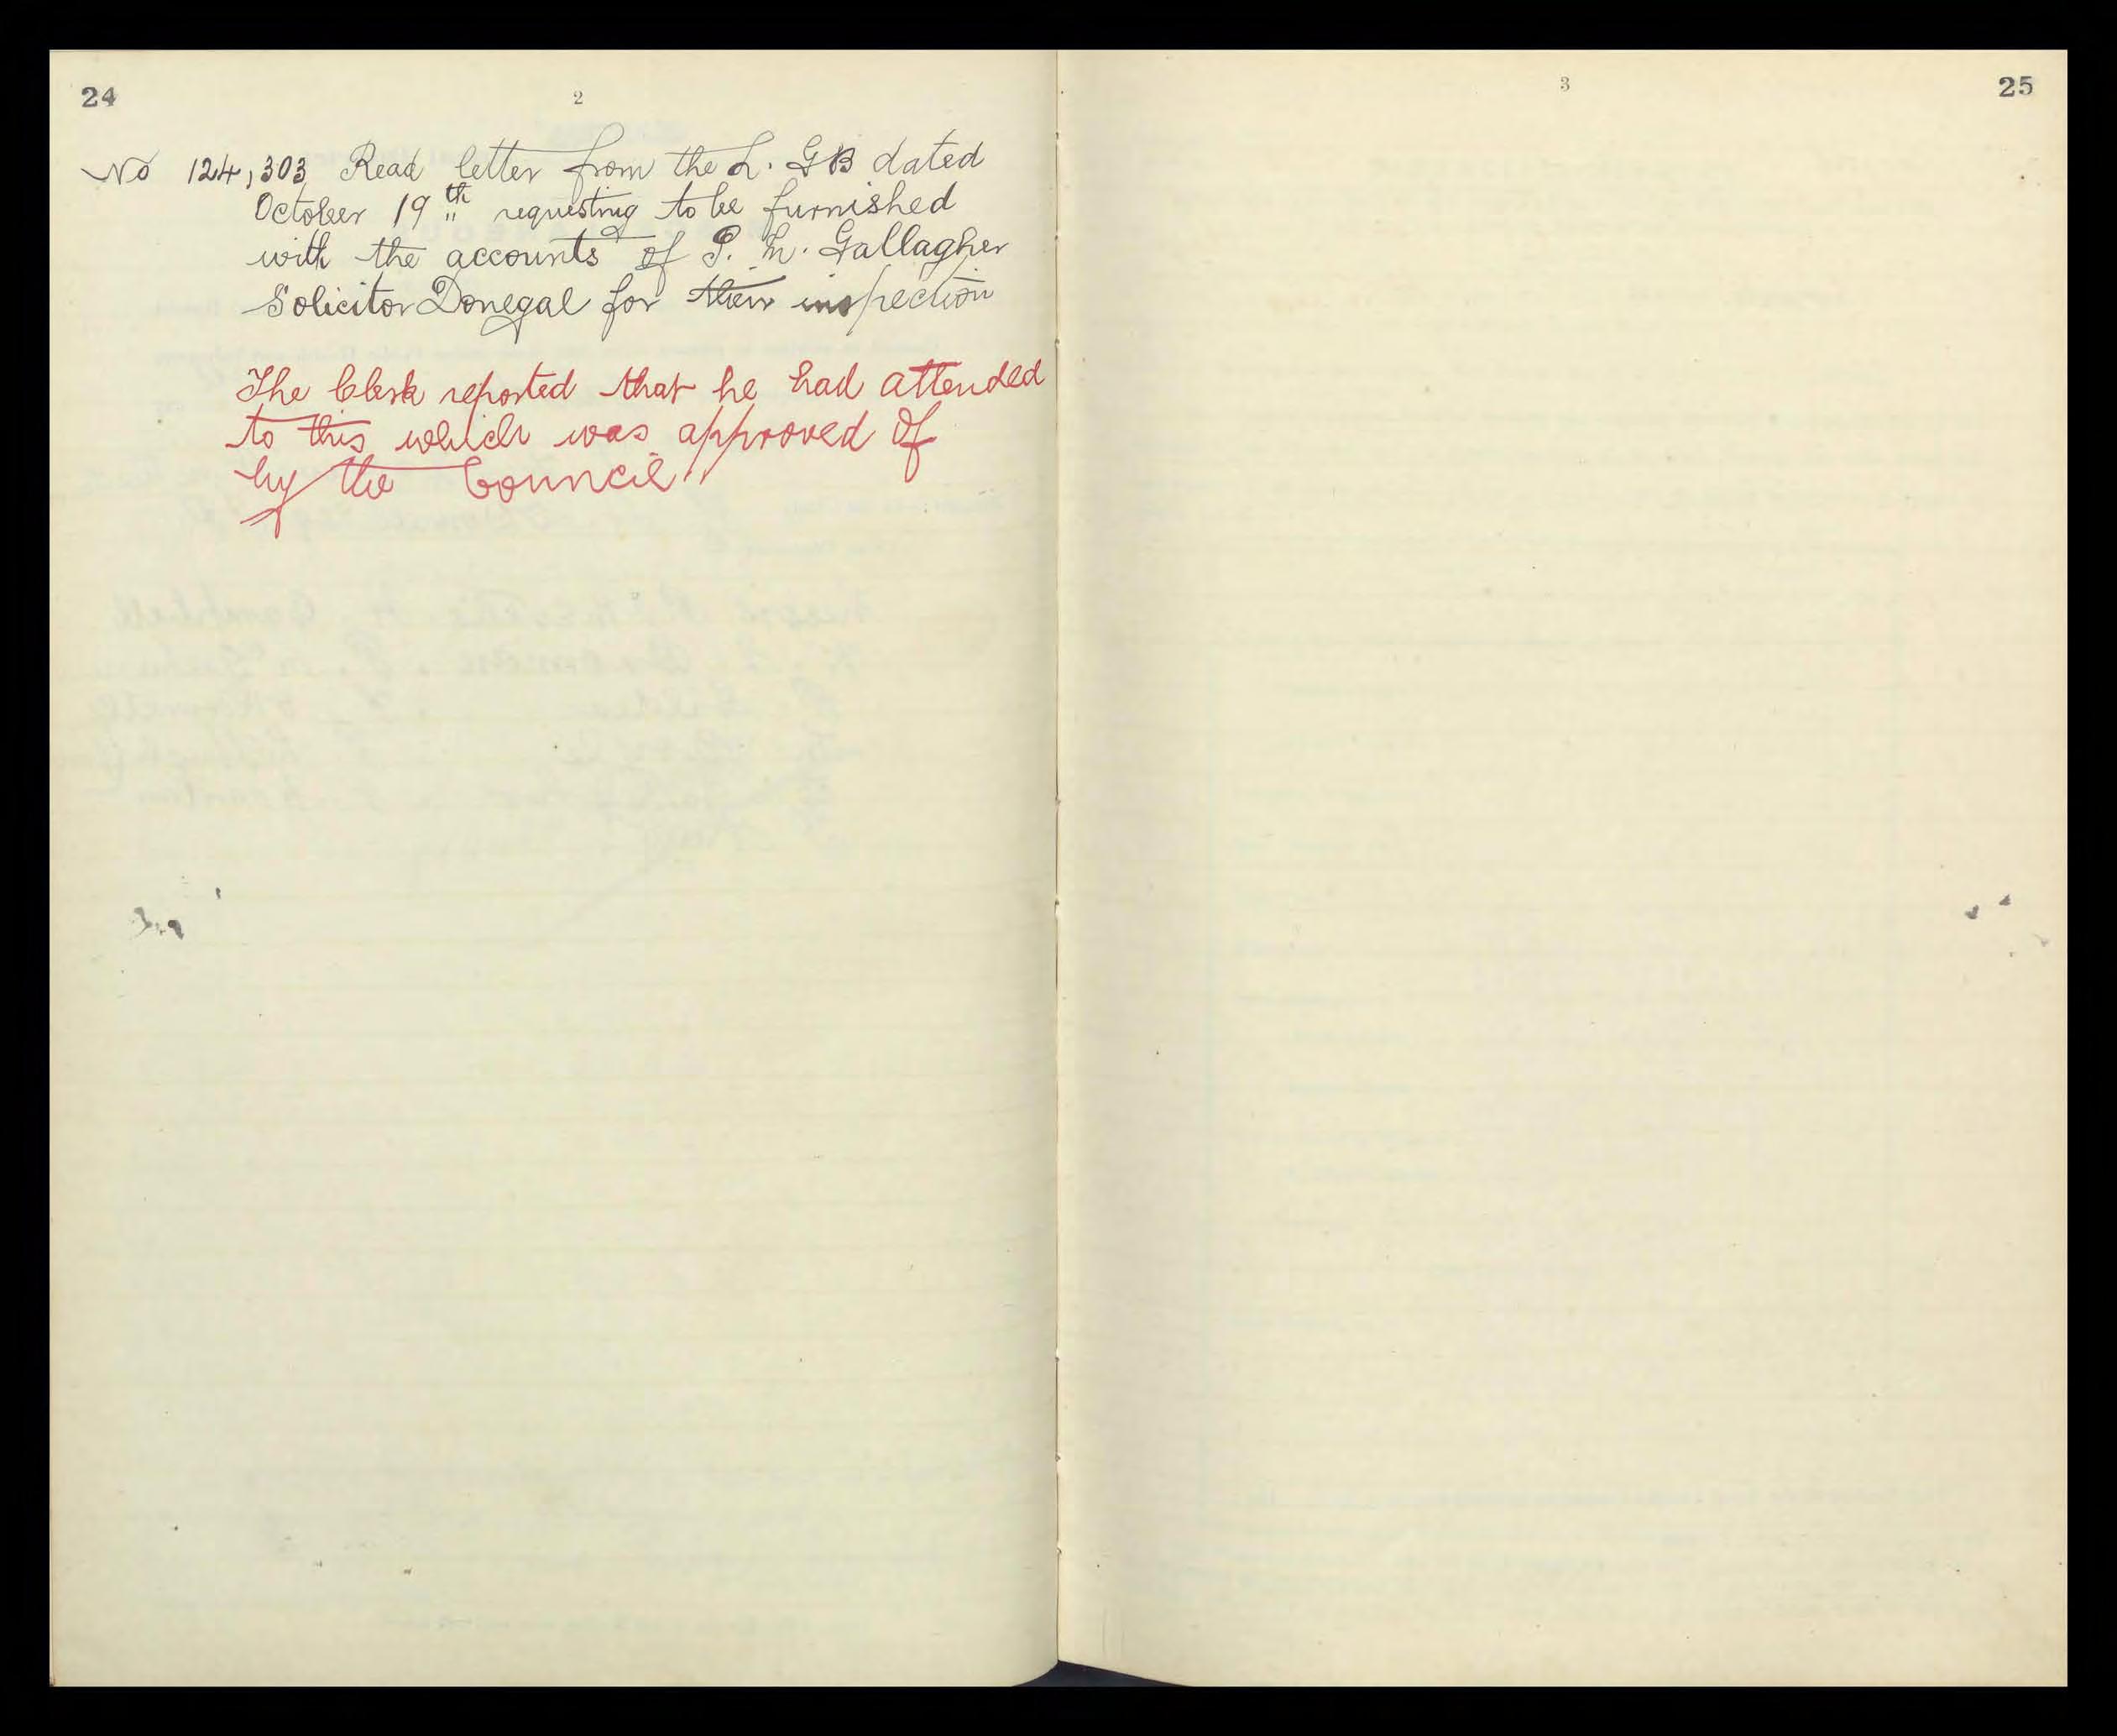 24
2
No 124,303 Read letter from the L. GB dated
October 19th requesting to be furnished
with the accounts of P. M. Gallagher
Solicitor Donegal for their inspection
The Clerk reported that he had attended
to this which was approved of
by the Council
3
25